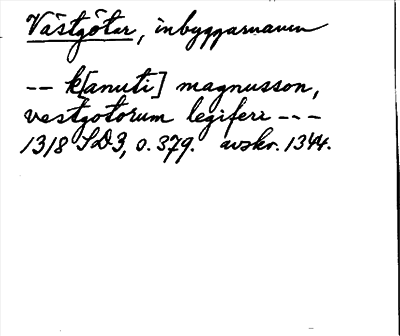 Västgötar, inbyggarnamn
-- k[anuti] magnusson,
vestgotorum legiferi ---
1318 SD3, s. 379. avskr. 1344.